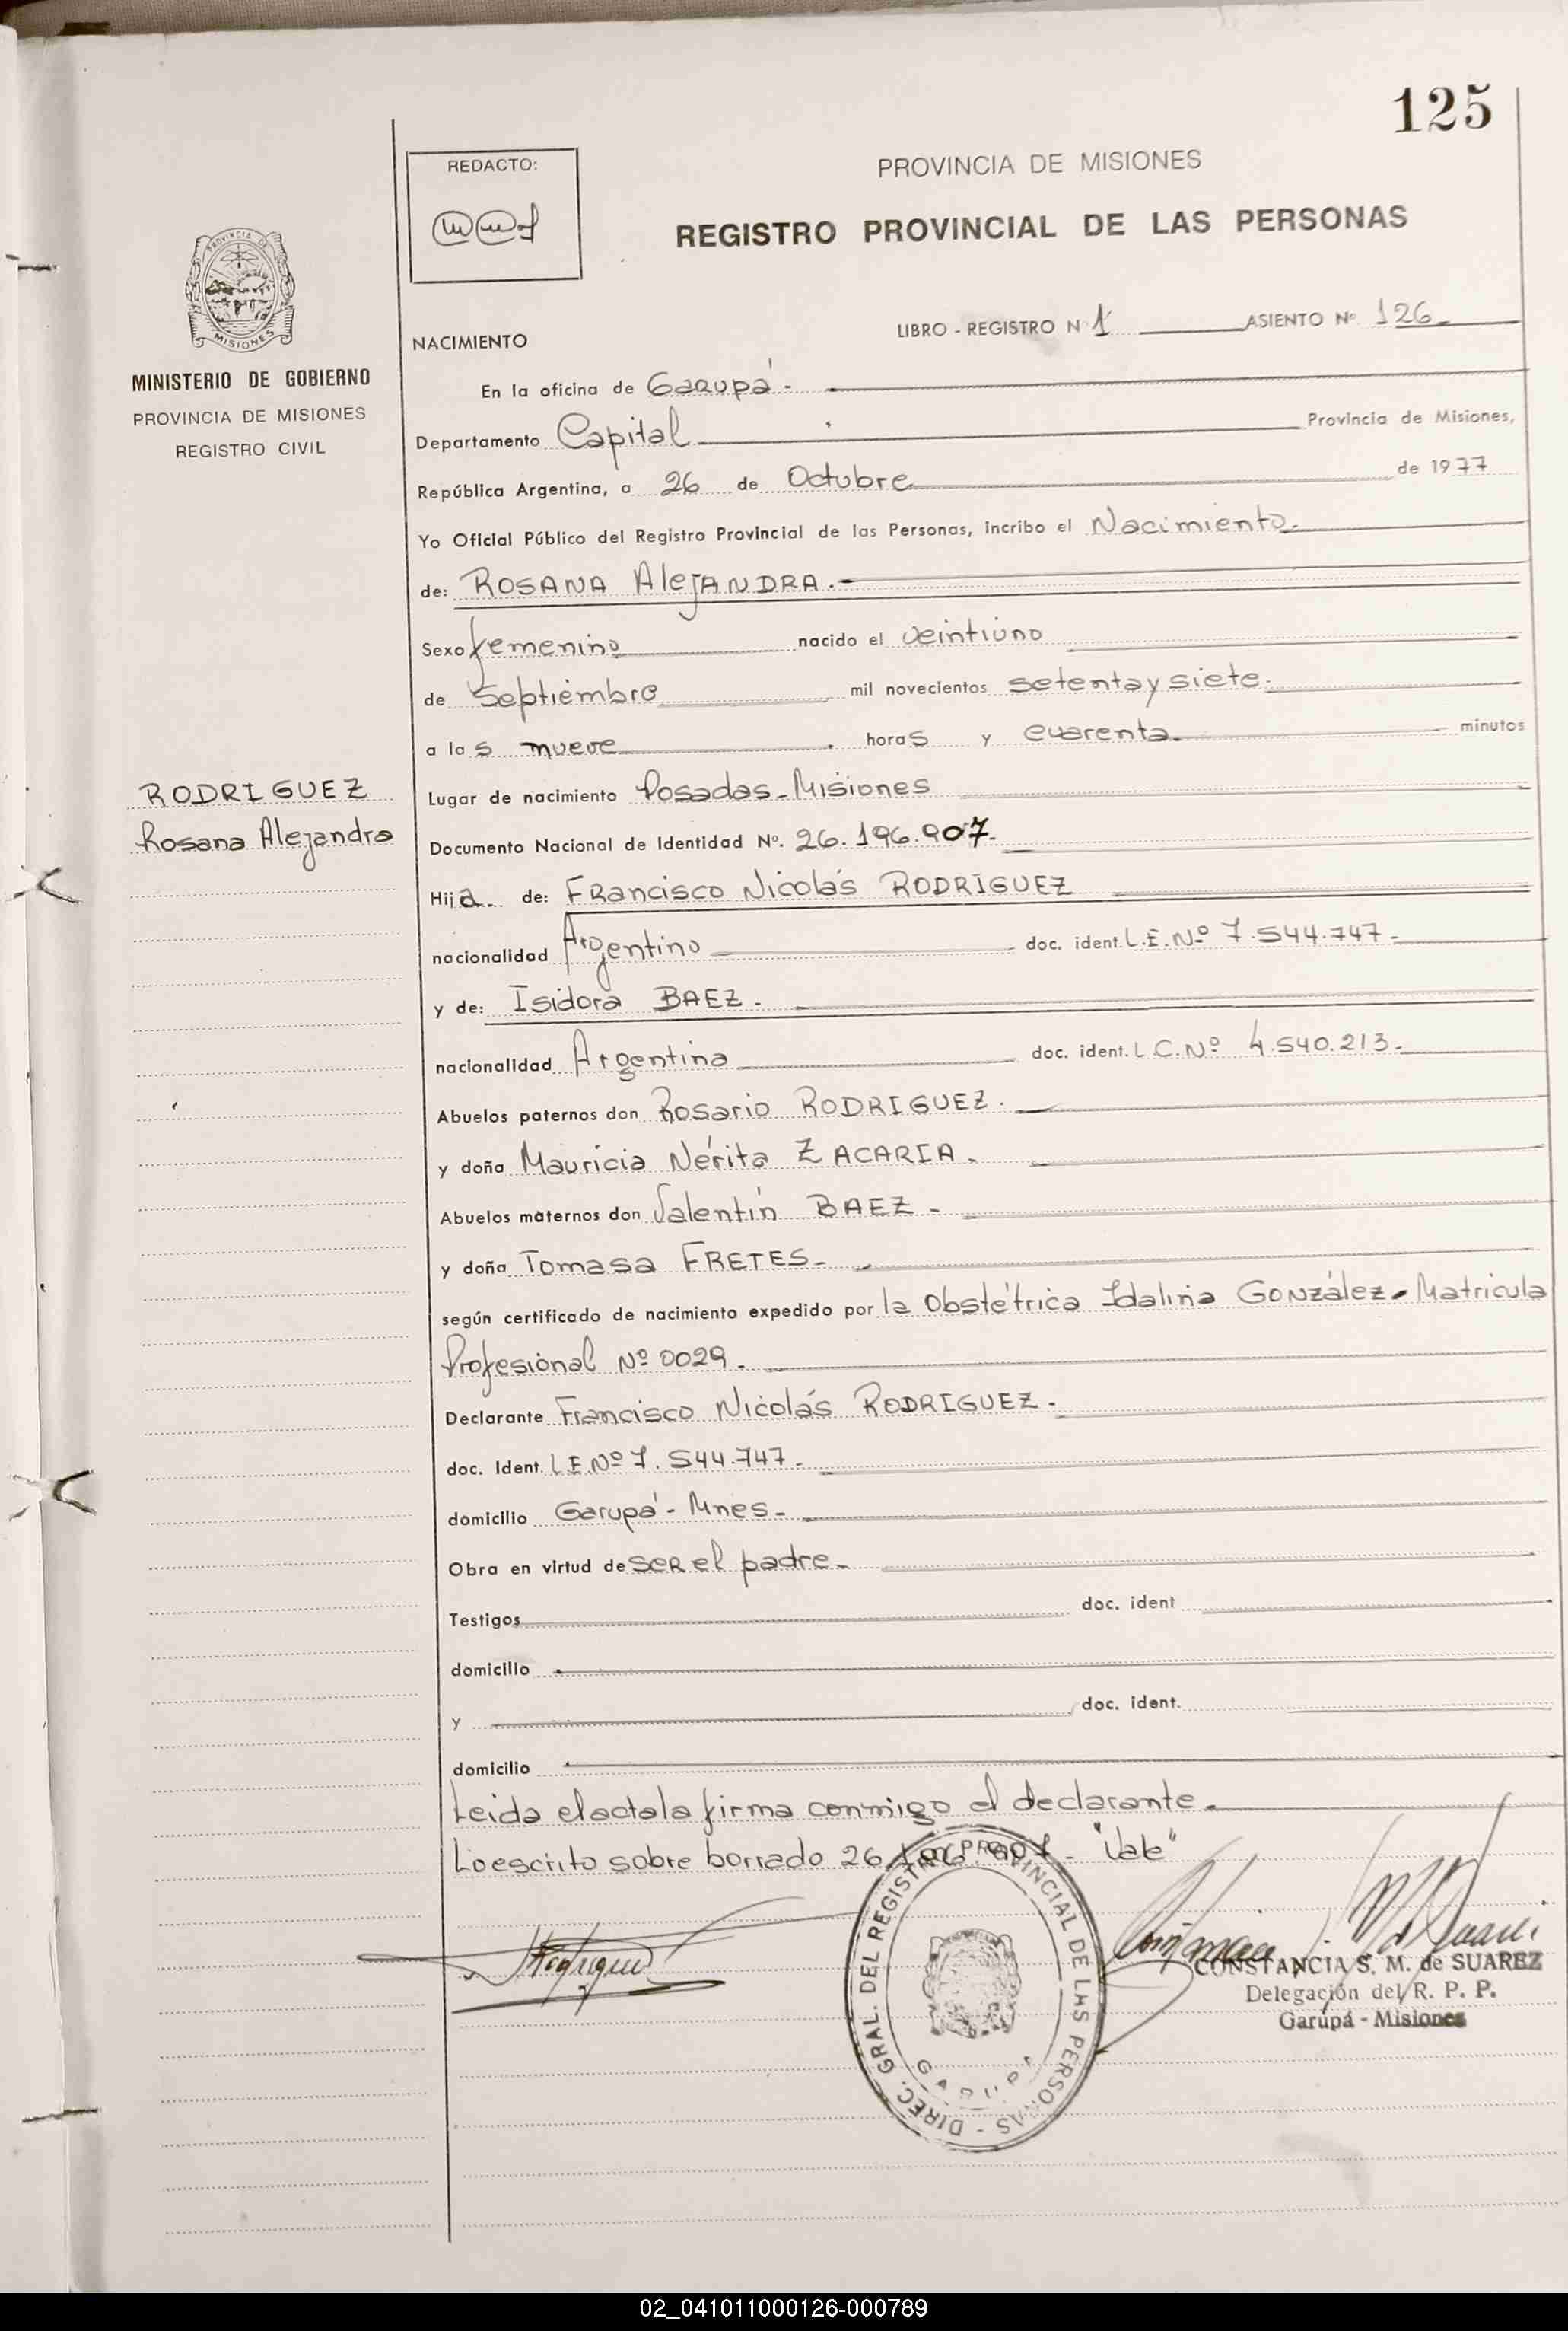 125
REDACTO:
PROVINCIA DE MISIONES
REGISTRO PROVINCIAL DE LAS PERSONAS
PROVINCIA DE
MISIONES
MINISTERIO DE GOBIERNO
PROVINCIA DE MISIONES
REGISTRO CIVIL
NACIMIENTO
LIBRO - REGISTRO N 1 ASIENTO Nº 126
En la oficina de Garupá.-
Departamento Capital Provincia de Misiones,
República Argentina, a 26 de Octubre de 1977
Yo Oficial Público del Registro Provincial de las Personas, incribo el Nacimiento.
de: ROSANA AleJANDRA.-
Sexo femenino nacido el veintiuno
de Septiembre mil novecientos setenta y siete.
a las nueve horas y cuarenta minutos
RODRIGUEZ
Rosana Alejandra
Lugar de nacimiento Posadas-Misiones
Documento Nacional de Identidad Nº. 26.196.907.
Hija. de: FRancisco Nicolás RODRIGUEZ
nacionalidad Argentino doc. ident. L.E.Nº 7.544.747-
y de: Isidora BAEZ.
nacionalidad Argentina doc. ident. L.C.Nº 4.540.213.
Abuelos paternos don Rosario RODRIGUEZ.
y doña Mauricia Nérita ZACARIA.
Abuelos maternos don Valentín BAEZ-
y doña Tomasa FRETES-
según certificado de nacimiento expedido por la Obstétrica Idalina GONzález-Matricula
Profesional Nº 0029.
Declarante Francisco Nicolás RODRIGUEZ.
doc. Ident. L.E.Nº 7.544.747-
domicilio Garupá-Mnes-
Obra en virtud de SER el padre-
Testigos doc. ident
domicilio
y doc. ident.
domicilio
Leida el acta la firma conmigo el declarante.
Lo escrito sobre borrado 26.196.907- "Vale"
DIREC. GRAL. DEL REGISTRO PROVINCIAL DE LAS PERSONAS -
GARUPA
CONSTANCIA S. M. de SUAREZ
Delegación del R. P. P.
Garupá - Misiones
02_041011000126-000789